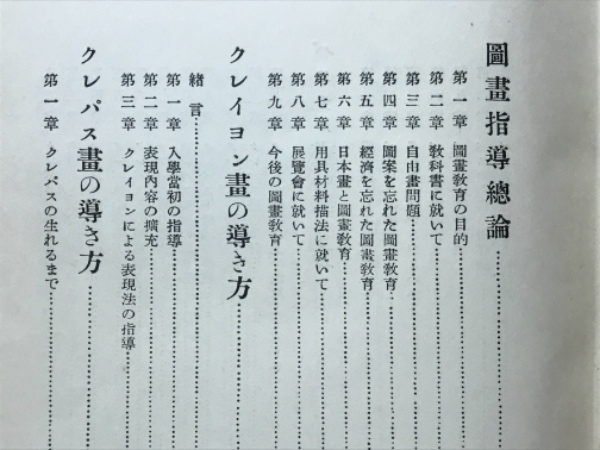 圖畫指導總論
第一章 圖畫敎育の目的
第二章 敎科書に就いて
第三章 自由畫問題
第四章 圖案を忘れた圖畫敎育
第五章 經濟を忘れた圖畫敎育
第六章 日本畫と圖畫敎育
第七章 用具材料描法に就いて
第八章 展覽會に就いて
第九章 今後の圖畫敎育
クレイヨン畫の導き方
緒言
第一章 入學當初の指導
第二章 表現內容の擴充
第三章 クレイヨンによる表現法の指導
クレパス畫の導き方
第一章 クレパスの生れるまで